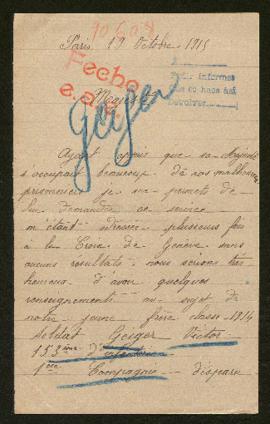 Paris, 19 Octobre 1915
Fecho
Majesté
Geiger
Ayant appris que sa Majesté
s'occupait beaucoup de nos malheureux
prisonniers je me permets de
lui demander ce service
m'étant adressée plusieurs fois
à la Croix de Genève sans
aucuns résultats. nous serions très
heureux d'avoir quelques
renseignements au sujet de
notre jeune frère classe 1914
soldat Geiger Victor
153ème d'infanterie
1ère Compagnie disparu